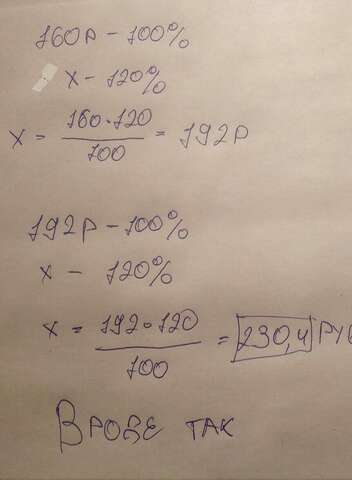 160р - 100%
х - 120%
х = 160·120 / 100 = 192р
192р - 100%
х - 120%
х = 192·120 / 100 = 230,4 РУБ
ВРОДЕ ТАК